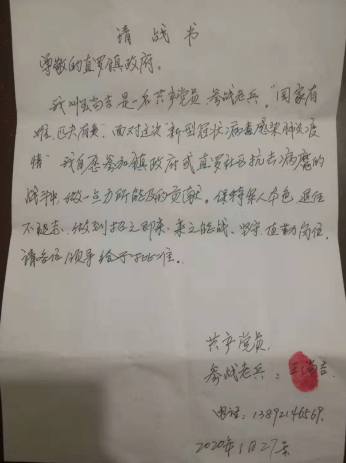 请战书
尊敬的直罗镇政府。
我叫王尚吉是一名共产党员、参战老兵。"国家有
难、匹夫有责"。面对这次"新型冠状病毒感染肺炎疫
情"我自愿参加镇政府或直罗社区抗击病魔的
战斗中,做一点力所能及的贡献。保持军人本色,退伍
不褪志、做到招之即来、来之能战、坚守值勤岗位。
请各位领导给予批准。
共产党员
参战老兵:王尚吉
电话:13892146569.
2020年1月27号